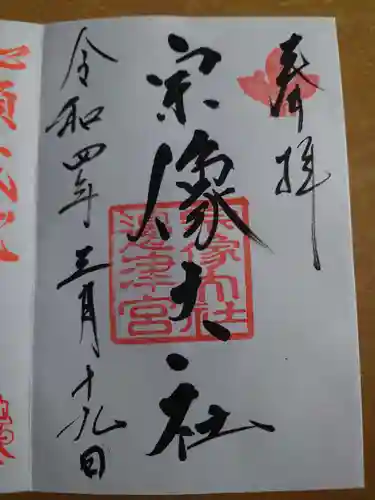 奉拝
宗像大社
宗像大社
邊津宮
令和四年三月十九日